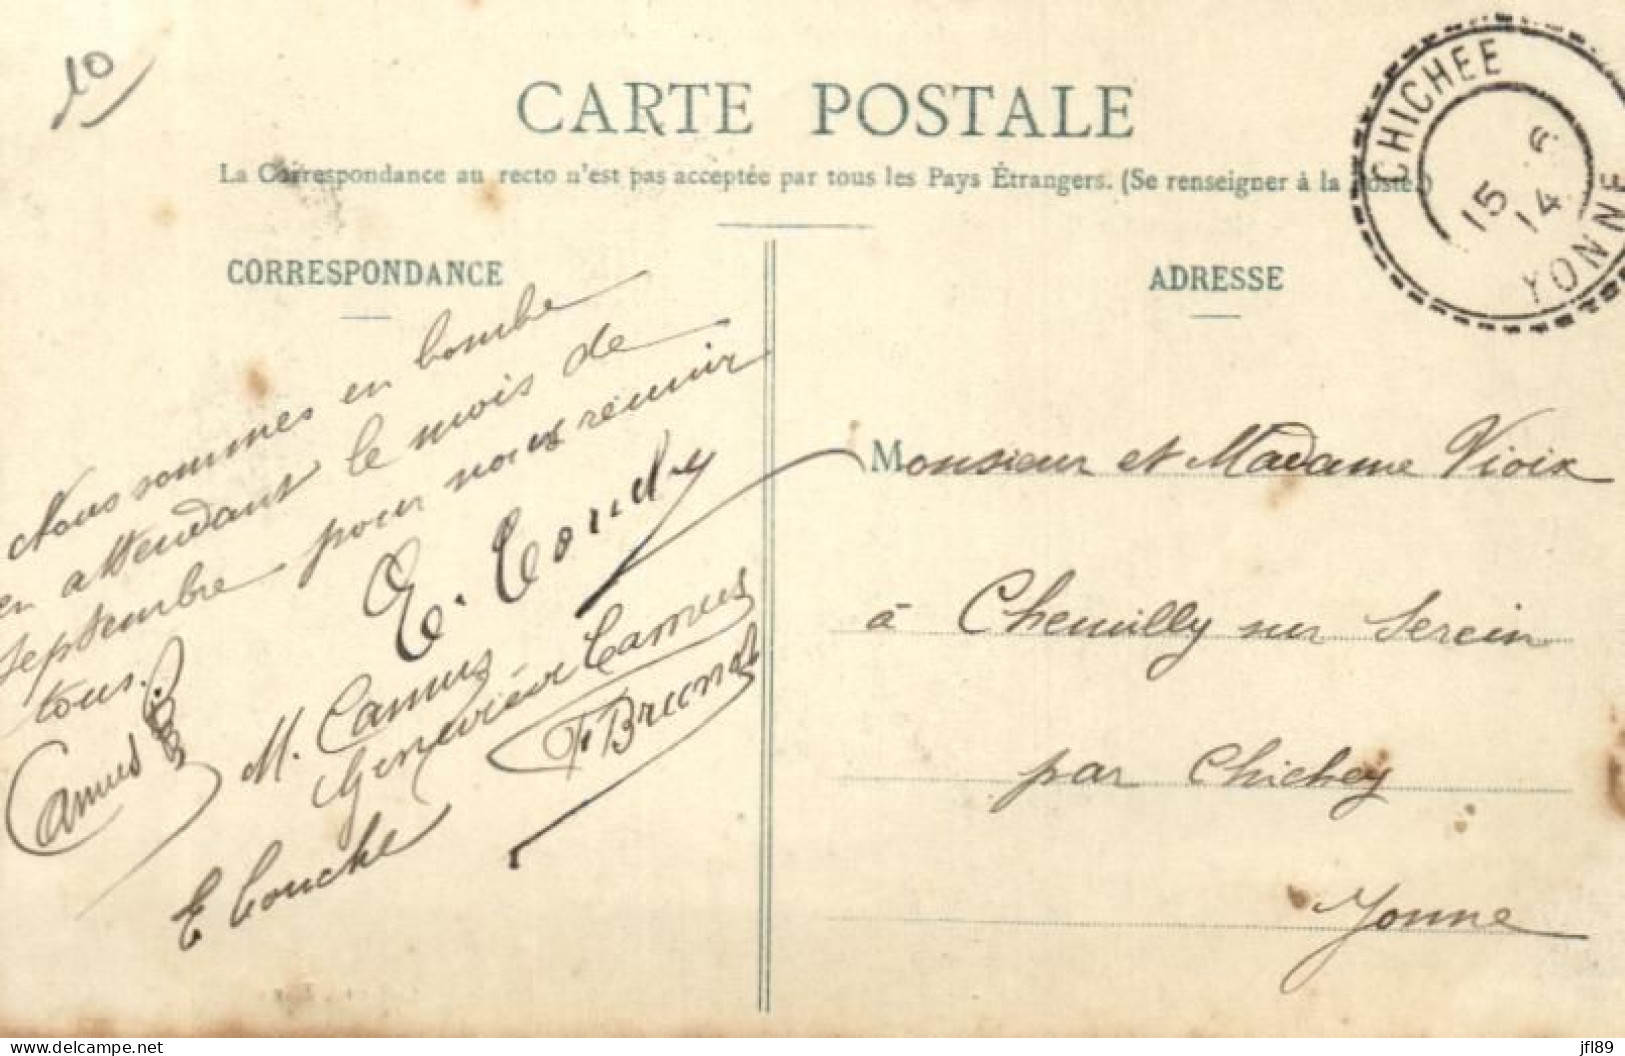 10
CARTE POSTALE
La Correspondance au recto n'est pas acceptée par tous les Pays Étrangers. (Se renseigner à la Poste.)
CHICHEE
15 14
YONNE
CORRESPONDANCE
Nous sommes en bombe
en attendant le mois de
septembre pour nous réunir
tous.
Camus
M. Camus
Geneviève Camus
Brunot
ADRESSE
Monsieur et Madame Vioix
à Chemilly sur Serein
par Chichey
Yonne
delcampe.net
jfl89